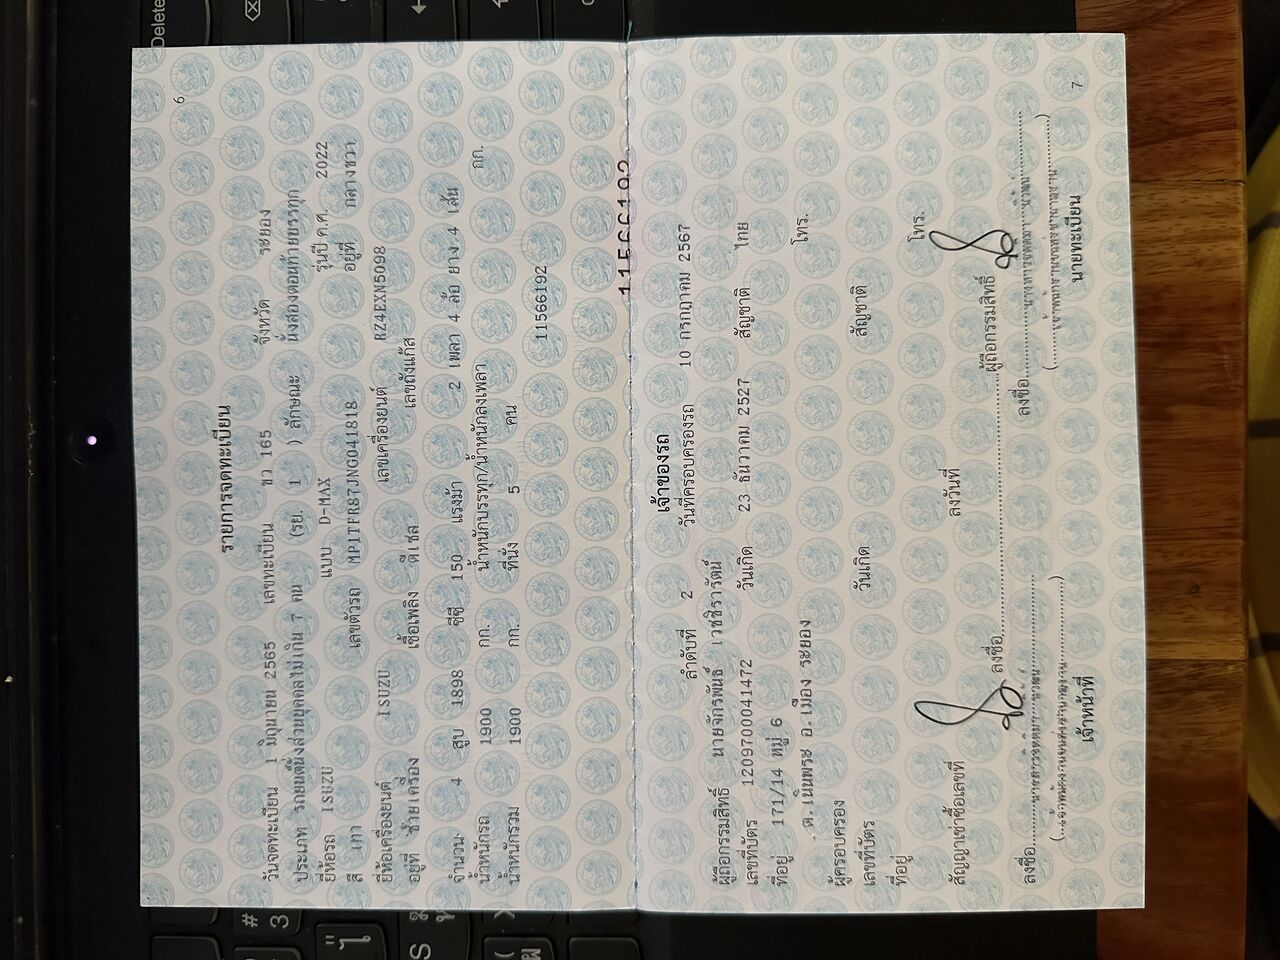 6
รายการจดทะเบียน
วันจดทะเบียน 1 มิถุนายน 2565 เลขทะเบียน ขว 165 จังหวัด ระยอง
ประเภท รถยนต์นั่งส่วนบุคคลไม่เกิน 7 คน (รย. 1 ) ลักษณะ นั่งสองตอนท้ายบรรทุก
ยี่ห้อรถ ISUZU แบบ D-MAX รุ่นปี ค.ศ. 2022
สี เทา เลขตัวรถ MP1TFR87JNG041818 อยู่ที่ กลางขวา
ยี่ห้อเครื่องยนต์ ISUZU เลขเครื่องยนต์ RZ4EXN5098
อยู่ที่ ซ้ายเครื่อง เชื้อเพลิง ดีเซล เลขถังแก๊ส
จำนวน 4 สูบ 1898 ซีซี 150 แรงม้า 2 เพลา 4 ล้อ ยาง 4 เส้น
น้ำหนักรถ 1900 กก. น้ำหนักบรรทุก/น้ำหนักลงเพลา กก.
น้ำหนักรวม 1900 กก. ที่นั่ง 5 คน
11566192
11566192
เจ้าของรถ
ลำดับที่ 2 วันที่ครอบครองรถ 10 กรกฎาคม 2567
ผู้ถือกรรมสิทธิ์ นายจักรพันธ์ เวชชิรารัตน์
เลขที่บัตร 1209700041472 วันเกิด 23 ธันวาคม 2527 สัญชาติ ไทย
ที่อยู่ 171/14 หมู่ 6
ต.เนินพระ อ.เมือง ระยอง โทร.
ผู้ครอบครอง
เลขที่บัตร วันเกิด สัญชาติ
ที่อยู่ โทร.
สัญญาเช่าซื้อเลขที่ ลงวันที่
ลงชื่อ ผู้ถือกรรมสิทธิ์
ลงชื่อ ลงชื่อ
เจ้าหน้าที่ นายทะเบียน
7